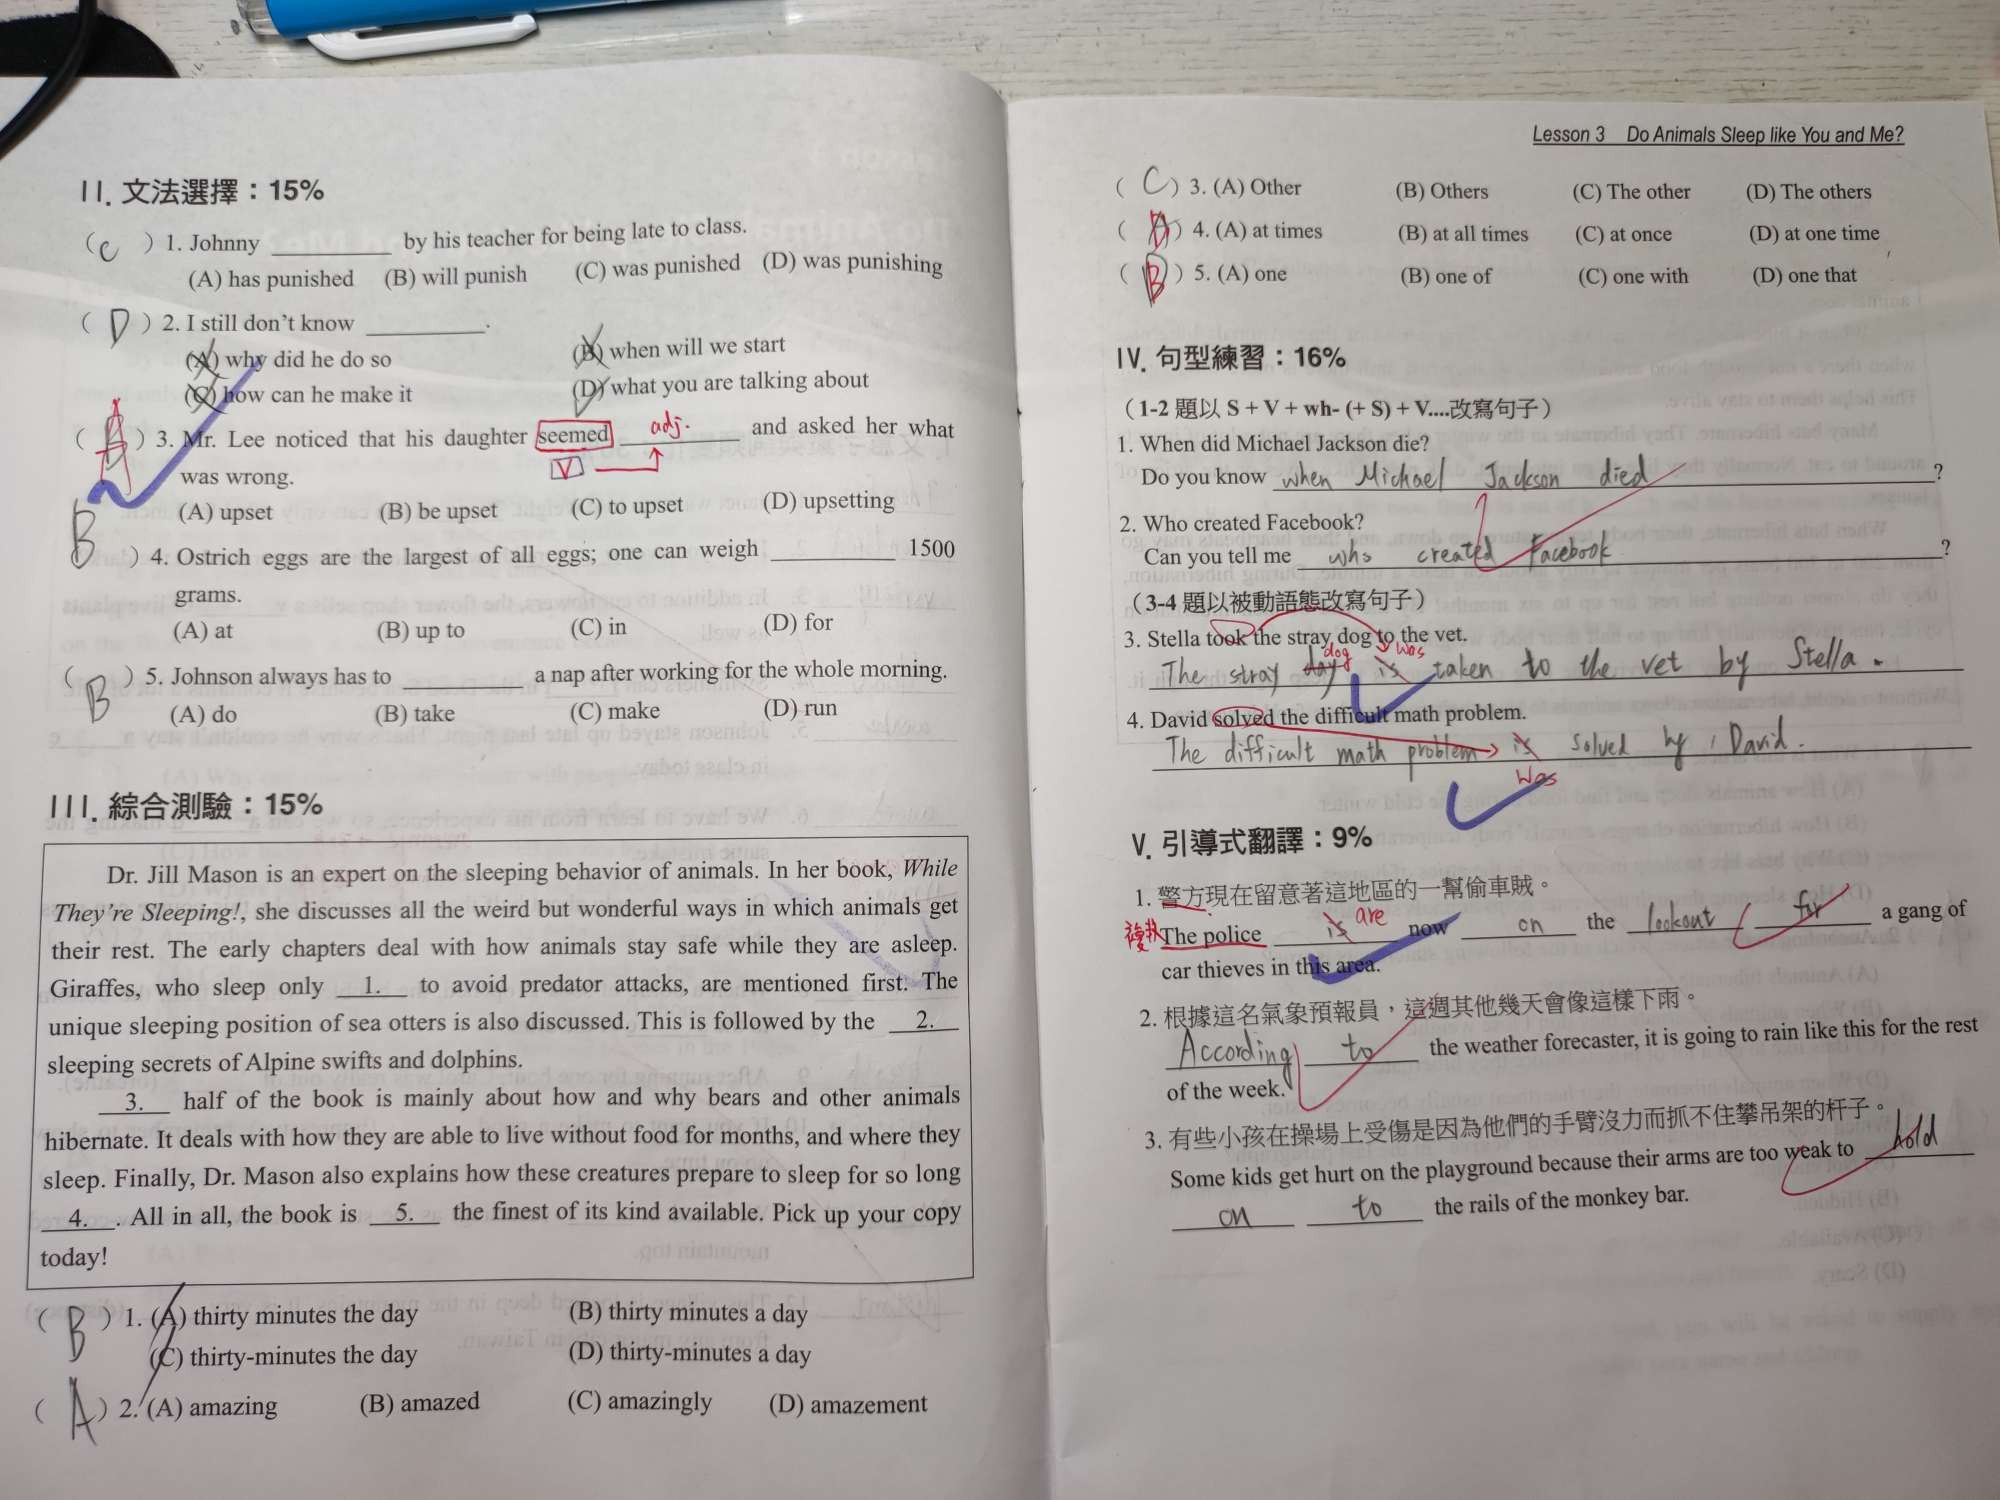 II. 文法選擇：15%
( C ) 1. Johnny __________ by his teacher for being late to class.
(A) has punished (B) will punish (C) was punished (D) was punishing
( D ) 2. I still don't know __________.
(A) why did he do so (B) when will we start
(C) how can he make it (D) what you are talking about
( A ) 3. Mr. Lee noticed that his daughter seemed adj. and asked her what
V
was wrong.
(A) upset (B) be upset (C) to upset (D) upsetting
B ) 4. Ostrich eggs are the largest of all eggs; one can weigh __________ 1500
grams.
(A) at (B) up to (C) in (D) for
( B ) 5. Johnson always has to __________ a nap after working for the whole morning.
(A) do (B) take (C) make (D) run
III. 綜合測驗：15%
Dr. Jill Mason is an expert on the sleeping behavior of animals. In her book, While
They're Sleeping!, she discusses all the weird but wonderful ways in which animals get
their rest. The early chapters deal with how animals stay safe while they are asleep.
Giraffes, who sleep only 1. to avoid predator attacks, are mentioned first. The
unique sleeping position of sea otters is also discussed. This is followed by the 2.
sleeping secrets of Alpine swifts and dolphins.
3. half of the book is mainly about how and why bears and other animals
hibernate. It deals with how they are able to live without food for months, and where they
sleep. Finally, Dr. Mason also explains how these creatures prepare to sleep for so long
4. . All in all, the book is 5. the finest of its kind available. Pick up your copy
today!
( B ) 1. (A) thirty minutes the day (B) thirty minutes a day
(C) thirty-minutes the day (D) thirty-minutes a day
( A ) 2. (A) amazing (B) amazed (C) amazingly (D) amazement
Lesson 3 Do Animals Sleep like You and Me?
( C ) 3. (A) Other (B) Others (C) The other (D) The others
( A ) 4. (A) at times (B) at all times (C) at once (D) at one time
( B ) 5. (A) one (B) one of (C) one with (D) one that
IV. 句型練習：16%
（1-2 題以 S + V + wh- (+ S) + V....改寫句子）
1. When did Michael Jackson die?
Do you know when Michael Jackson died ?
2. Who created Facebook?
Can you tell me who created Facebook ?
（3-4 題以被動語態改寫句子）
3. Stella took the stray dog to the vet.
dog was
The stray day is taken to the vet by Stella.
4. David solved the difficult math problem.
The difficult math problem is solved by David.
was
V. 引導式翻譯：9%
1. 警方現在留意著這地區的一幫偷車賊。
The police is are now on the lookout for a gang of
car thieves in this area.
2. 根據這名氣象預報員，這週其他幾天會像這樣下雨。
According to the weather forecaster, it is going to rain like this for the rest
of the week.
3. 有些小孩在操場上受傷是因為他們的手臂沒力而抓不住攀吊架的杆子。
Some kids get hurt on the playground because their arms are too weak to hold
on to the rails of the monkey bar.